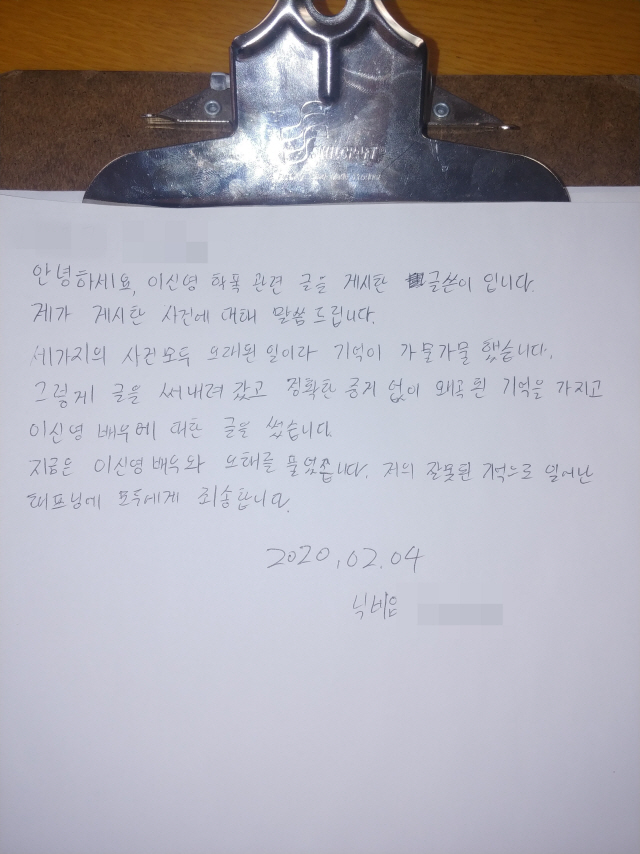 SKILCRAFT
안녕하세요, 이신영 학폭 관련 글을 게시한 글쓴이 입니다.
제가 게시한 사건에 대해 말씀 드립니다.
세가지의 사건모두 오래된 일이라 기억이 가물가물 했습니다.
그렇게 글을 써내려 갔고 정확한 증거 없이 왜곡 된 기억을 가지고
이신영 배우에 대한 글을 썼습니다.
지금은 이신영 배우와 오해를 풀었습니다. 저의 잘못된 기억으로 일어난
해프닝에 모두에게 죄송합니다.
2020.02.04